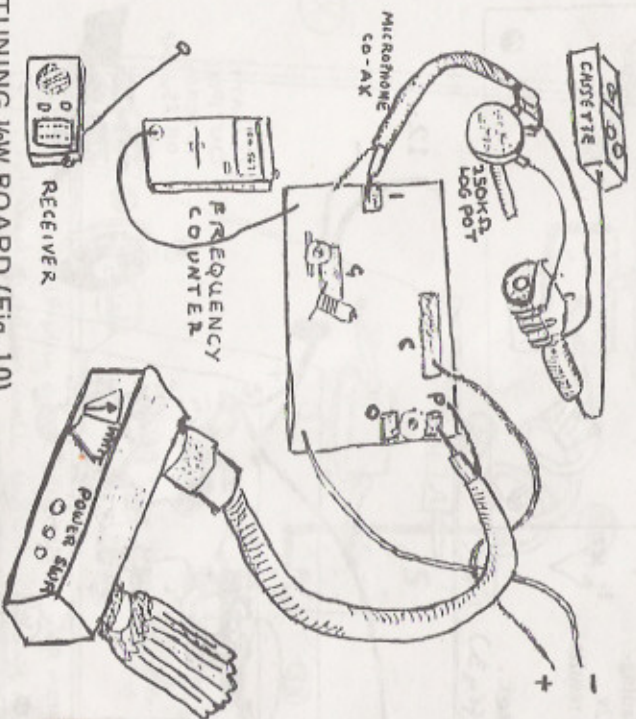 CASSETTE
MICROPHONE
CO-AX
250KΩ
LOG POT
I
C
G
P
O
+
-
FREQUENCY
COUNTER
RECEIVER
POWER SWR
TUNING ½W BOARD (Fig. 10)